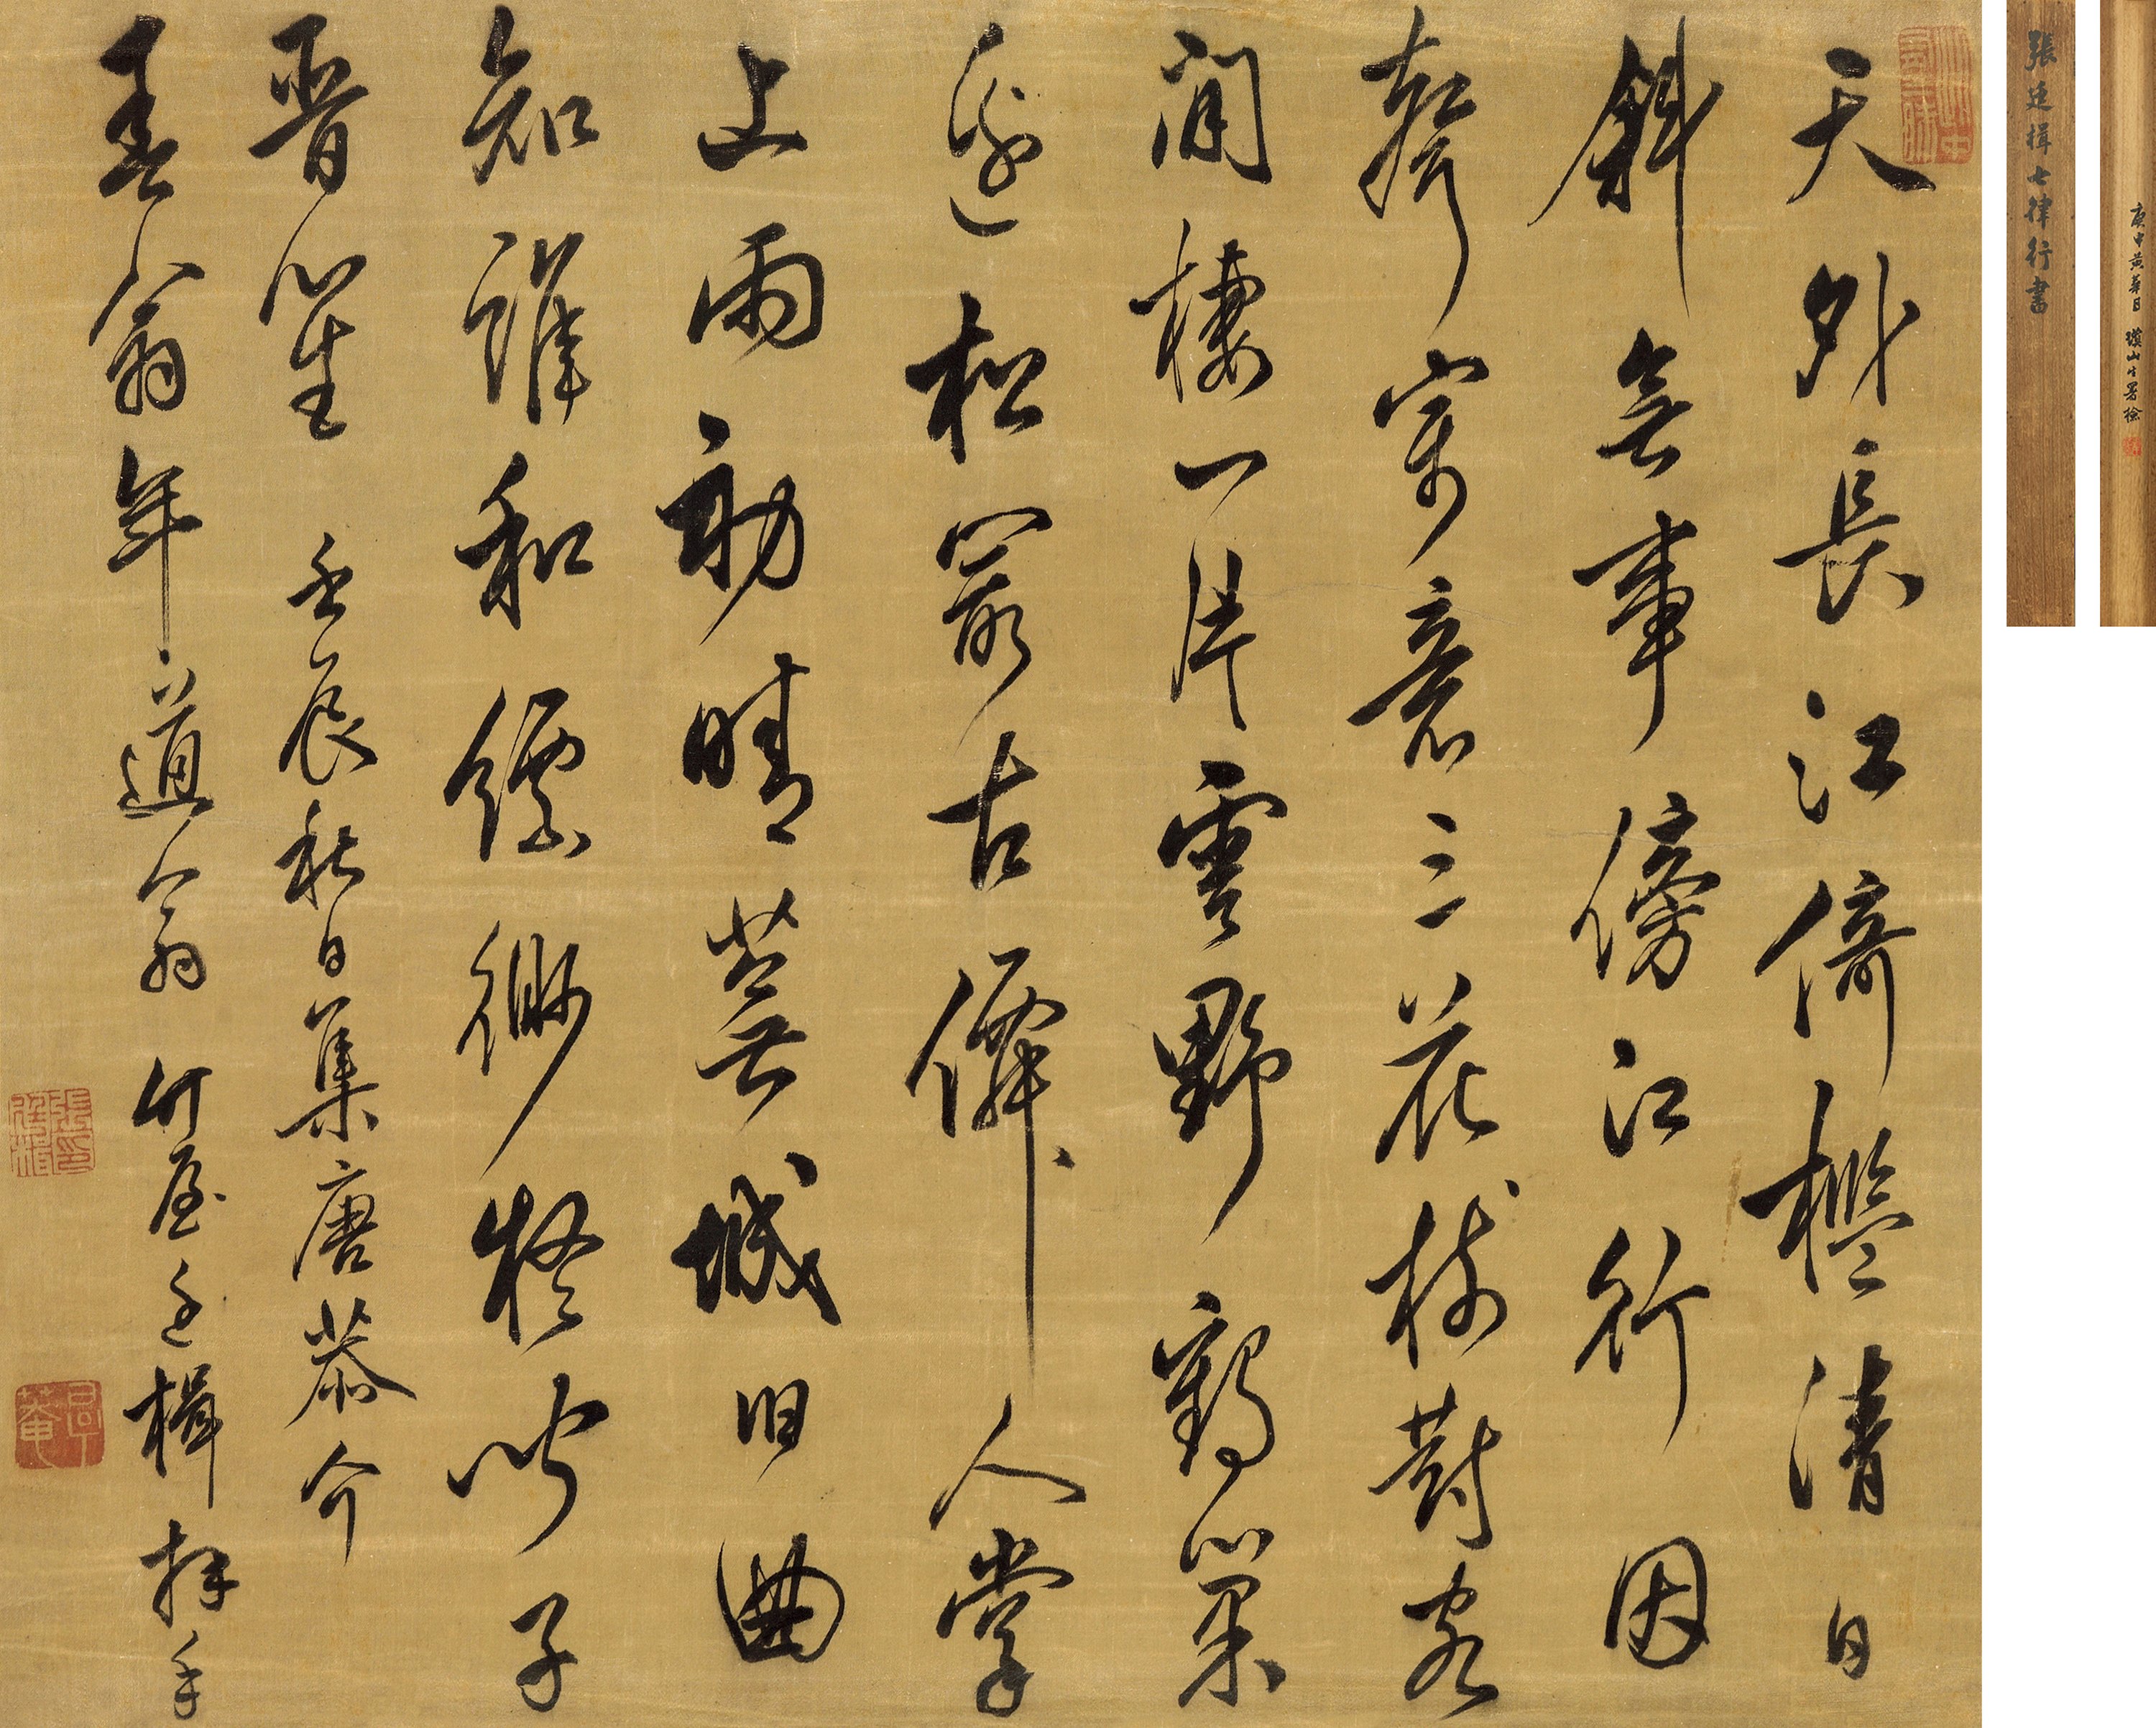 天外長江倚檻清日
斜無事傍江行因
聲寄意三花樹對客
閒棲一片雲野鶴巢
邊松最古僊人掌
上雨初晴蕪城旧曲
知誰和縹緲疑聞子
晉笙 壬辰秋日集唐恭介
翁年道翁 竹屋廷楫拜手
張廷楫七律行書
庚申黃華月 山生署檢